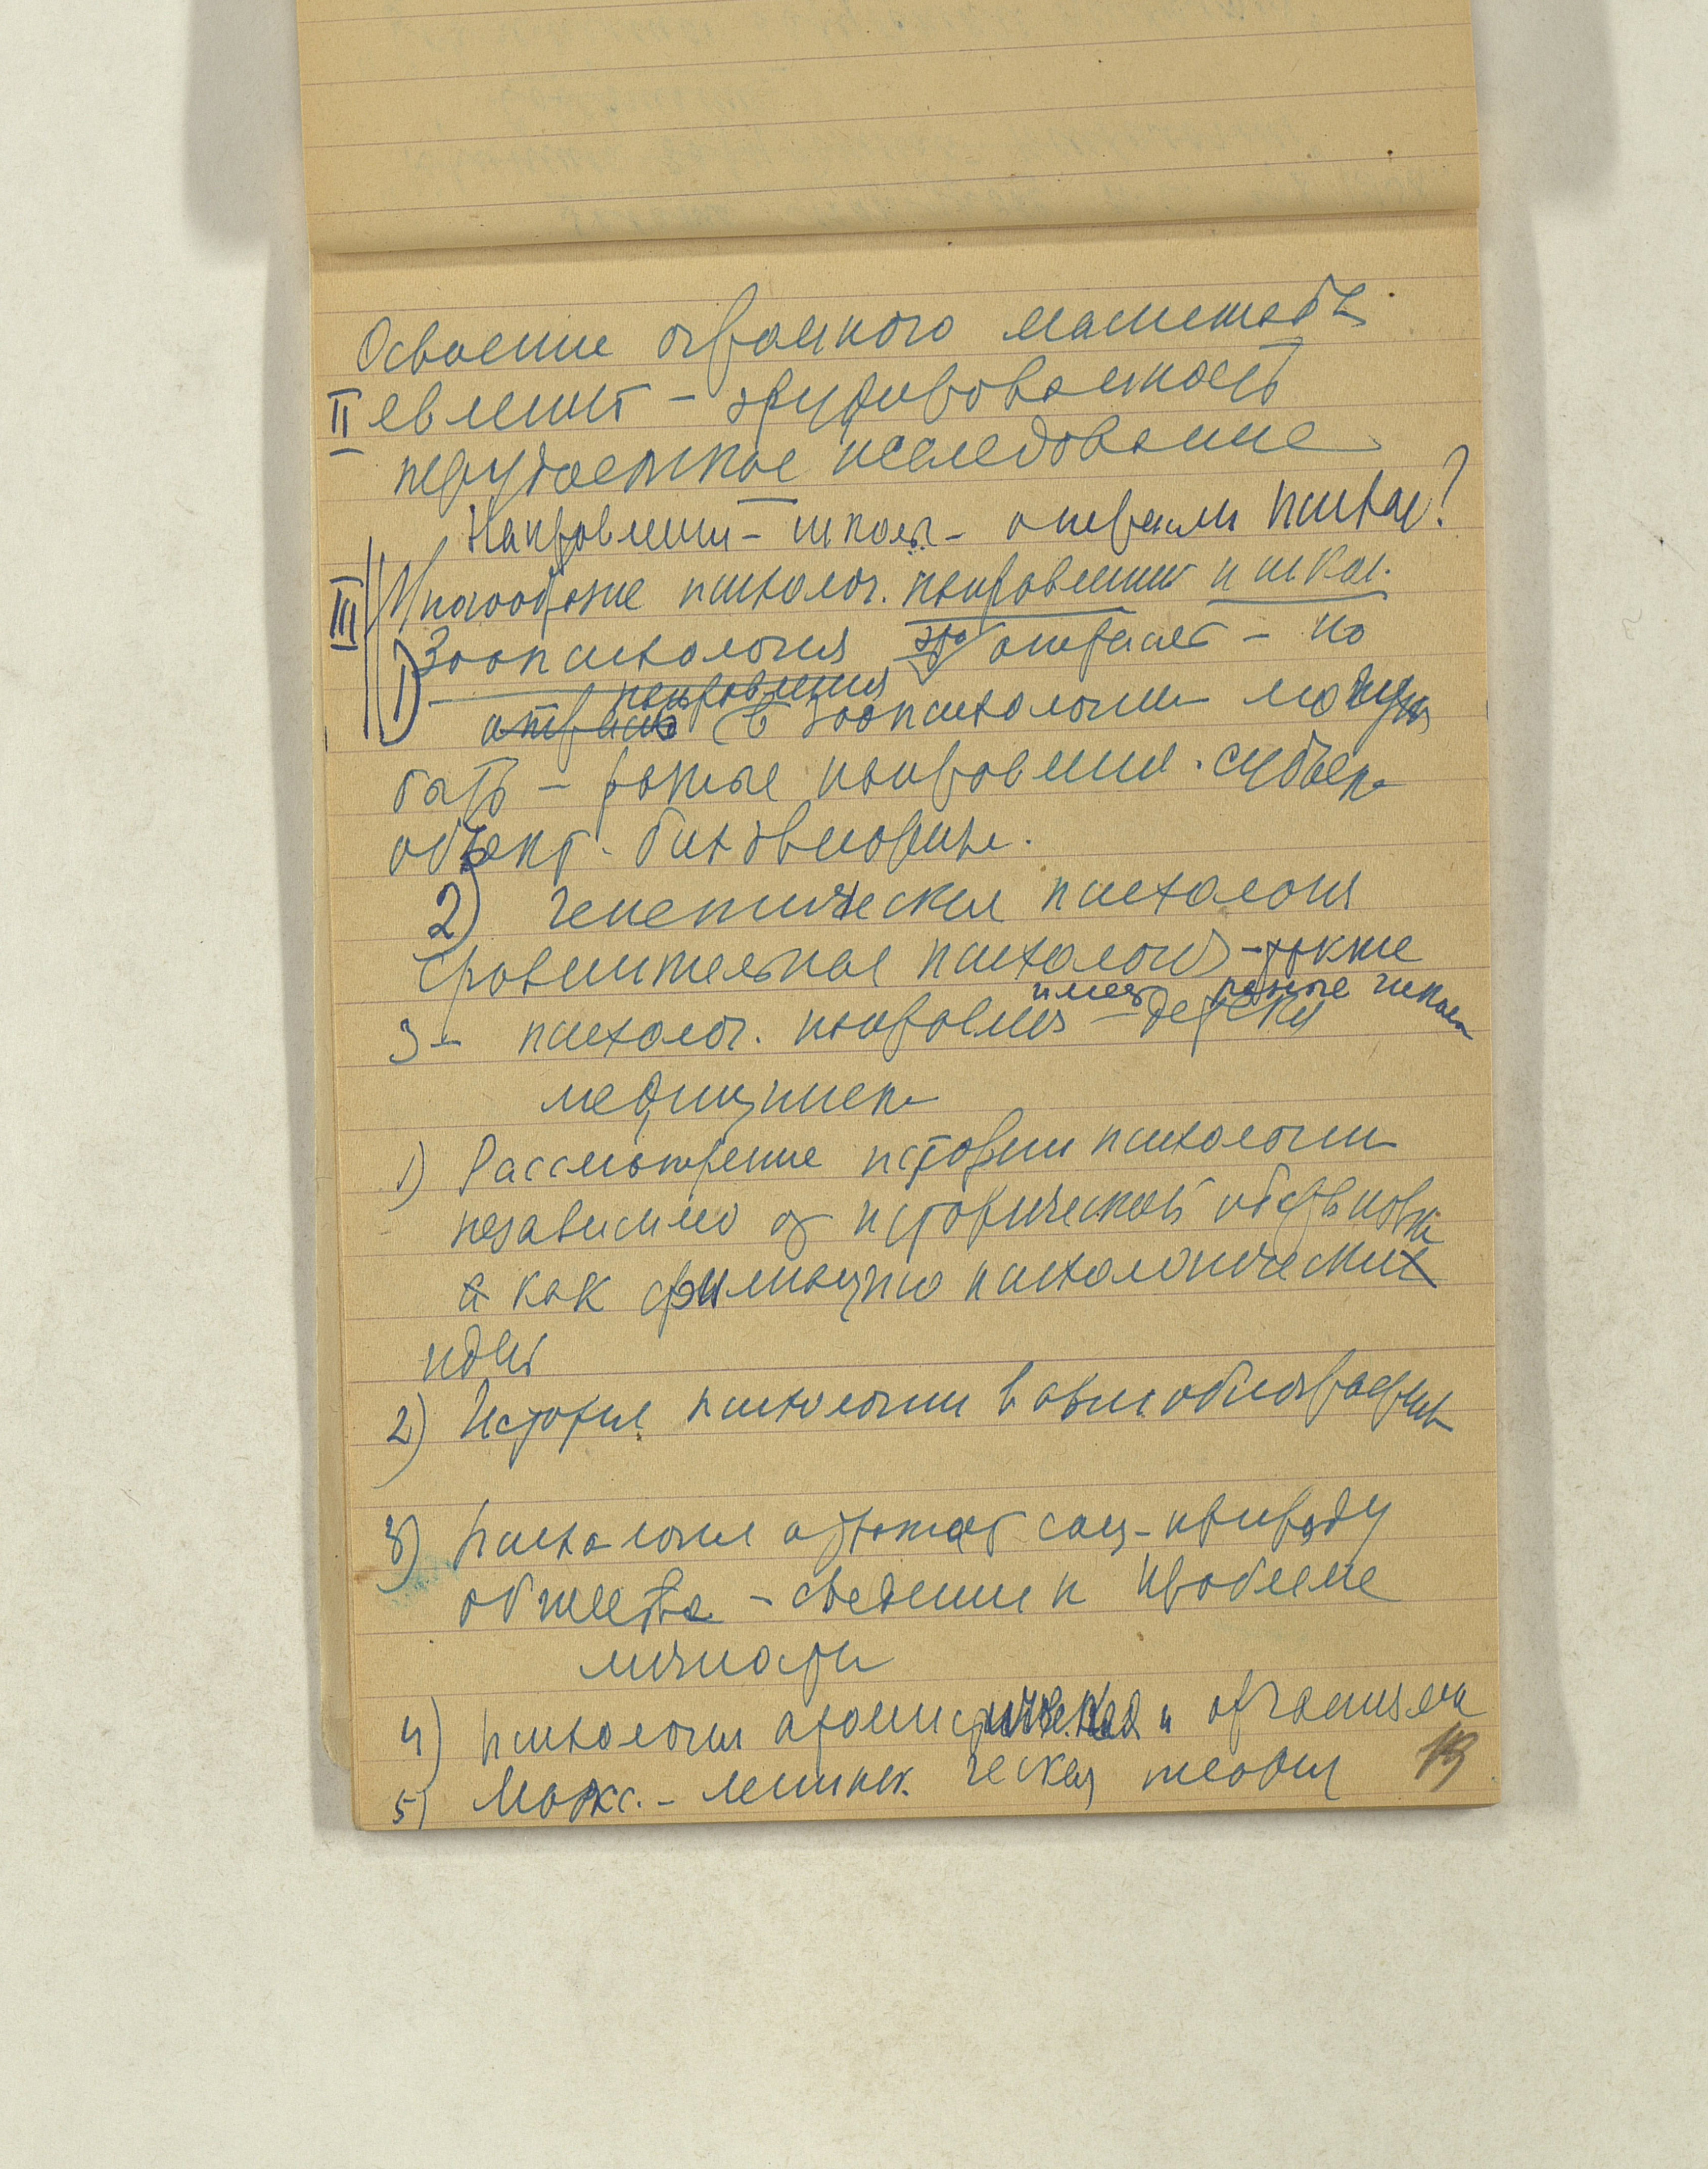 Освоение огромного масштаба
II явлений – эрудированность
трудоемкое исследование
Направлении – школы – отрасли психол?
III Многообразие психолог. направлений и школ.
1) Зоопсихология это отрасль – но
отрасль направления (в зоопсихологии могут
быть – разные направления. субъек
объект. бихевиоризм.
2) генетическая психология
сравнительная психология – также
имеет разные школы
3 – психолог. направления – детск
медицинск
1) Рассмотрение истории психологии
независимо от исторической обстановки
а как филиацию психологических
идей
2) История психологии в автобиографиях
3) психология отражает соц-природу
общества – сведение к проблеме
личности
4) психология атомистическая и организми
5) Маркс. – ленинск. ческая теория
19